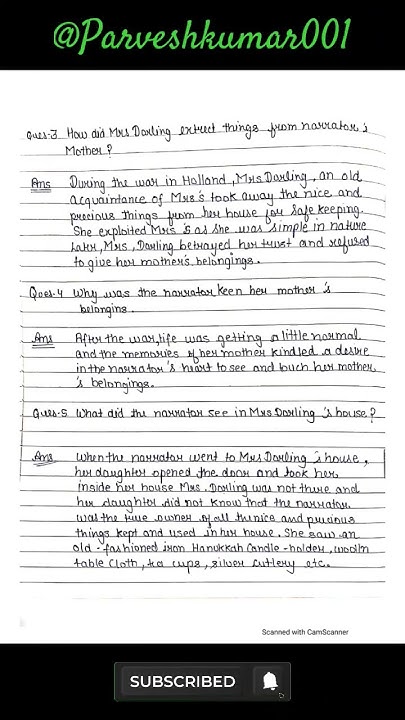 @Parveshkumar001
Ques-3 How did Mrs Dorling extrect things from narrator's
Mother?
Ans During the war in Holland, Mrs Dorling, an old
acquaintance of Mrs's took away the nice and
precious things from her house for safe keeping.
She exploited Mrs S as she was simple in nature
Later, Mrs, Dorling betrayed her trust and refused
to give her mother's belongings.
Ques-4 Why was the narrator keen her mother's
belongins.
Ans After the war, life was getting a little normal
and the memories of her mother kindled a desire
in the narrator's heart to see and touch her mother
's belongings.
Ques-5 What did the narrator see in Mrs Dorling's house?
Ans When the narrator went to Mrs Dorling's house,
her daughter opened the door and took her
inside her house Mrs. Dorling was not there and
her daughter did not know that the narrator
was the true owner of all the nice and precious
things kept and used in her house. She saw an
old-fashioned iron Hanukkah Candle-holder, woolin
table cloth, tea cups, silver cutlery etc.
Scanned with CamScanner
SUBSCRIBED